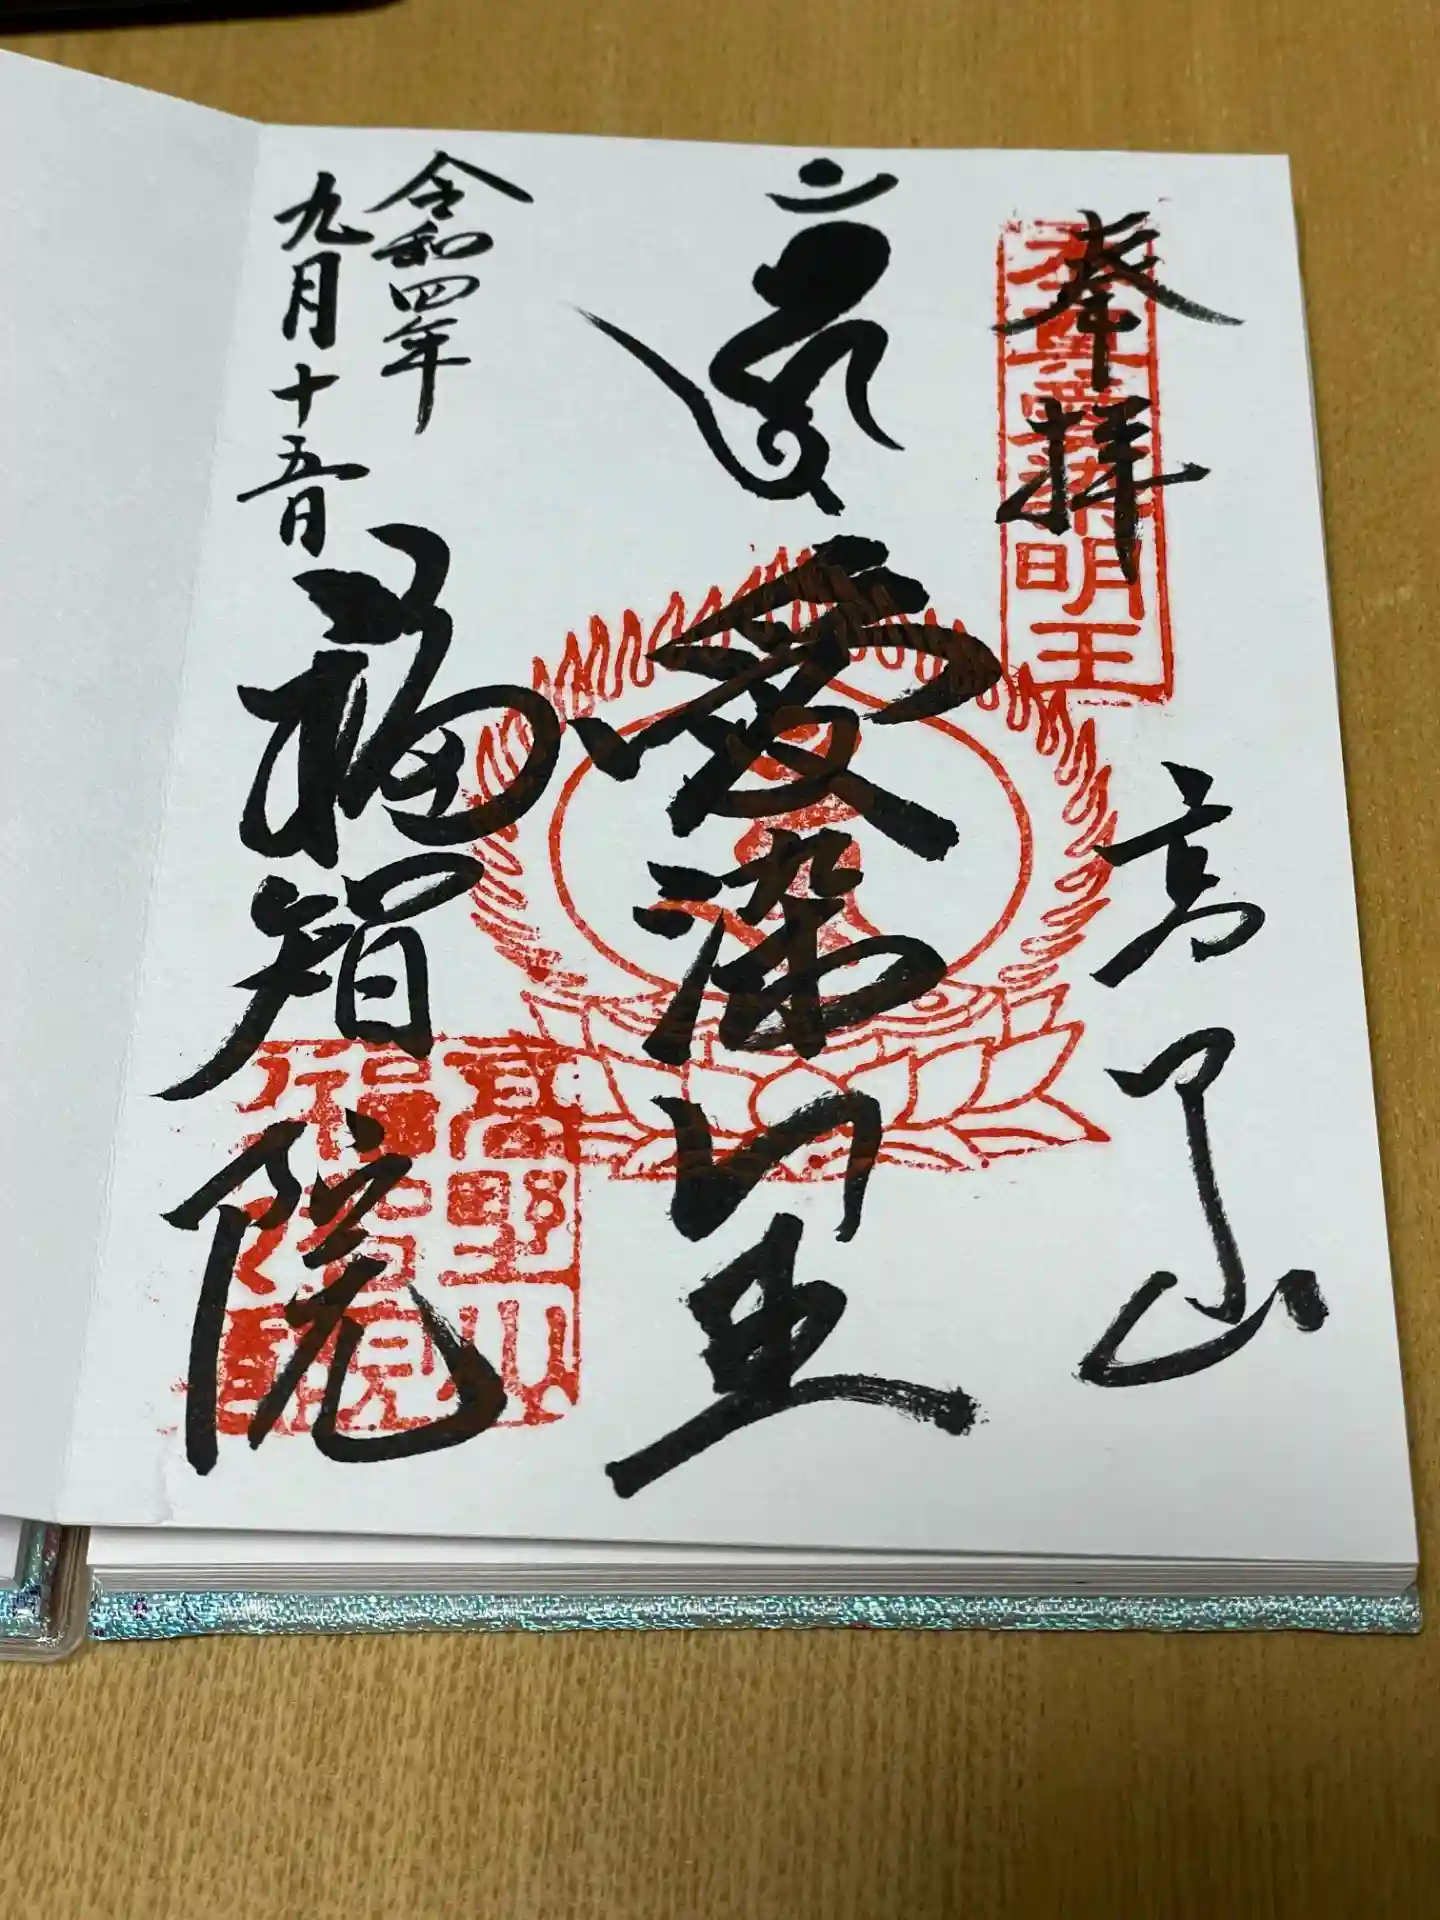 奉拝
高野山
本尊愛染明王
愛染明王
令和四年
九月十五日
福智院
高野山
福智院